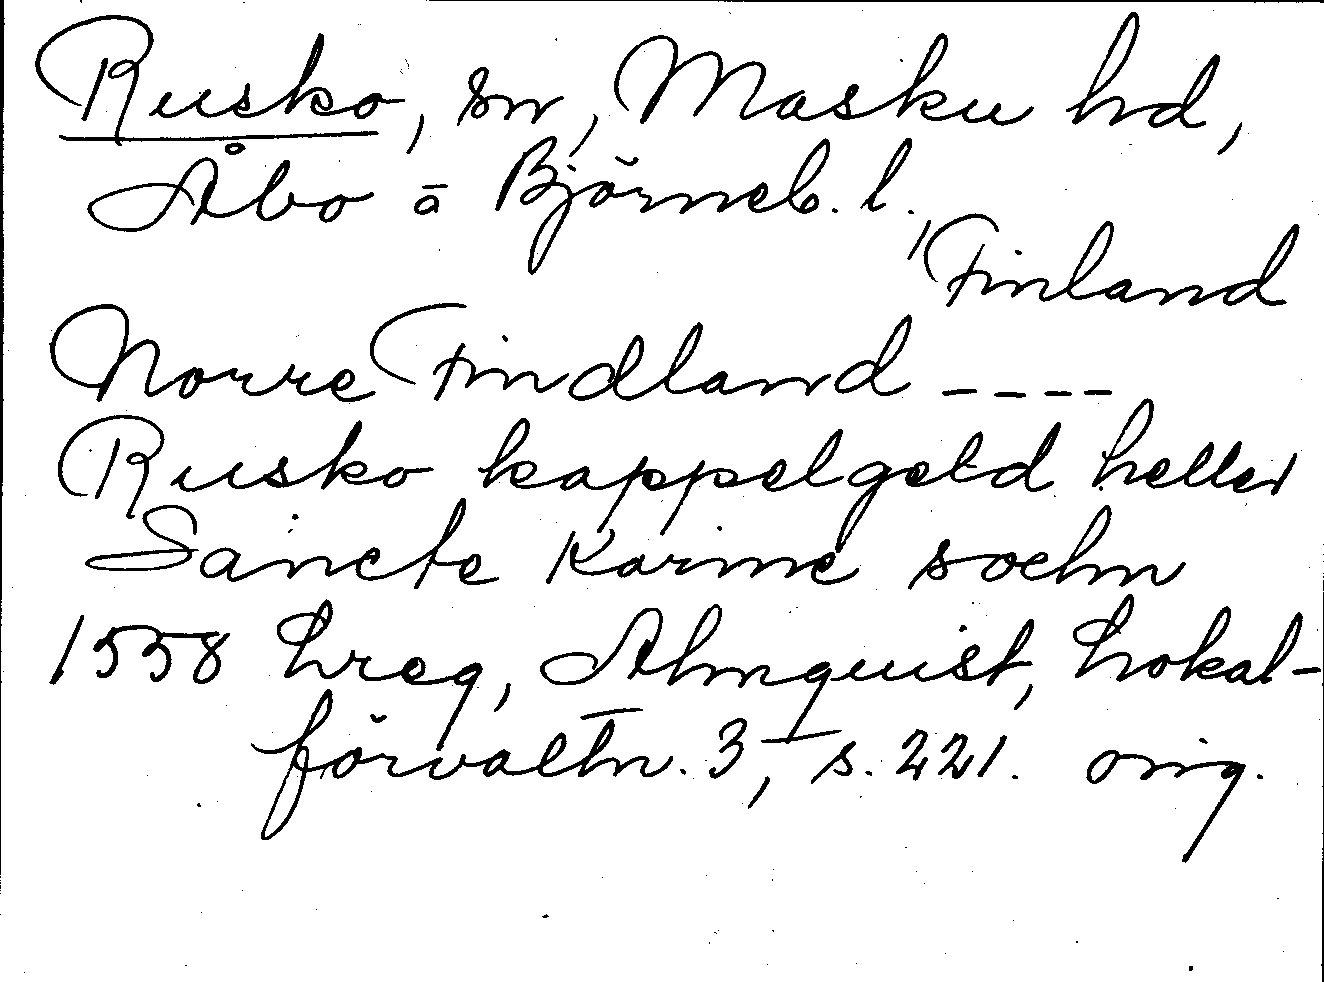 Rusko, sn, Masku hd,
Åbo o Björneb. l.,
Finland
Norre Findland ----
Rusko kappelgeld heller
Sancte Karine sochn
1558 Lreg, Almquist, Lokal-
förvaltn. 3, s. 221. orig.